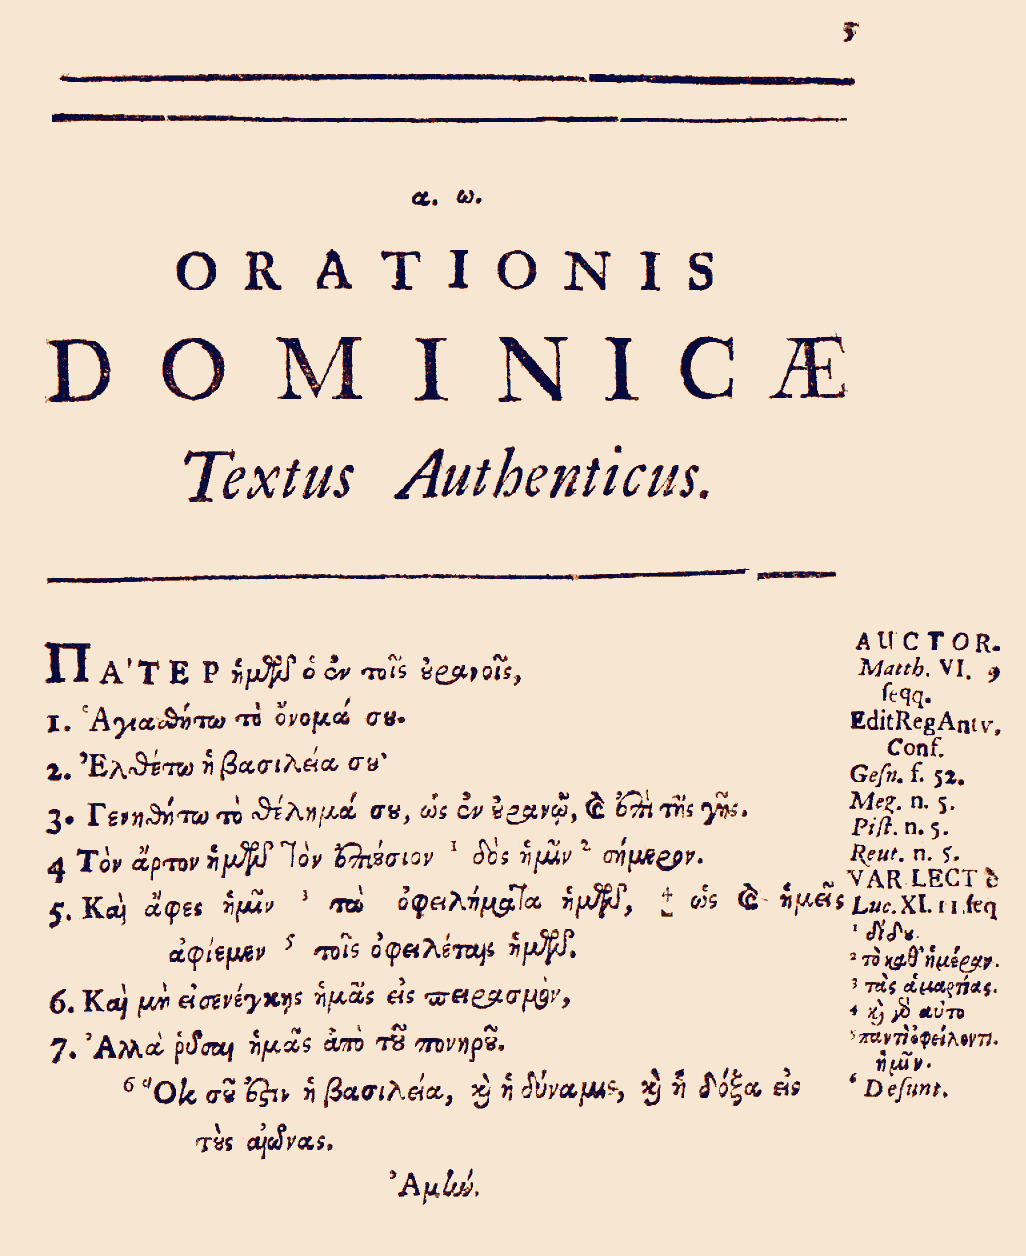 5
α. ω.
ORATIONIS
DOMINICÆ
Textus Authenticus.
ΠΑ'ΤΕΡ ἡμῶν ὁ ἐν τοῖς ȣ̓ρανοῖς,
1. Ἁγιασθήτω τὸ ὄνομά σȣ.
2. Ἐλθέτω ἡ βασιλεία σȣ·
3. Γενηθήτω τὸ θέλημά σȣ, ὡς ἐν ȣ̓ρανῷ, καὶ ἐπὶ τῆς γῆς.
4 Τὸν ἄρτον ἡμῶν τὸν ἐπιȣ́σιον 1 δὸς ἡμῖν 2 σήμερον.
5. Καὶ ἄφες ἡμῖν 3 τὰ ὀφειλήματα ἡμῶν, 4 ὡς καὶ ἡμεῖς
ἀφίεμεν 5 τοῖς ὀφειλέταις ἡμῶν.
6. Καὶ μὴ εἰσενέγκῃς ἡμᾶς εἰς πειρασμὸν,
7. Ἀλλὰ ῥῦσαι ἡμᾶς ἀπὸ τȣ͂ πονηρȣ͂.
6 Ὅτι σȣ͂ ἐστιν ἡ βασιλεία, καὶ ἡ δύναμις, καὶ ἡ δόξα εἰς
τȣ̀ς αἰῶνας.
Ἀμήν.
AUCTOR.
Matth. VI. 9
seqq.
EditRegAntv.
Conf.
Gesn. f. 52.
Meg. n. 5.
Pist. n. 5.
Reut. n. 5.
VAR LECT è
Luc. XI. 11. seq
1 δίδȣ.
2 τὸ καθ' ἡμέραν.
3 τὰς ἁμαρτίας.
4 καὶ γὰρ αὐτο
5 παντὶ ὀφείλοντι.
ἡμῖν.
6 Desunt.